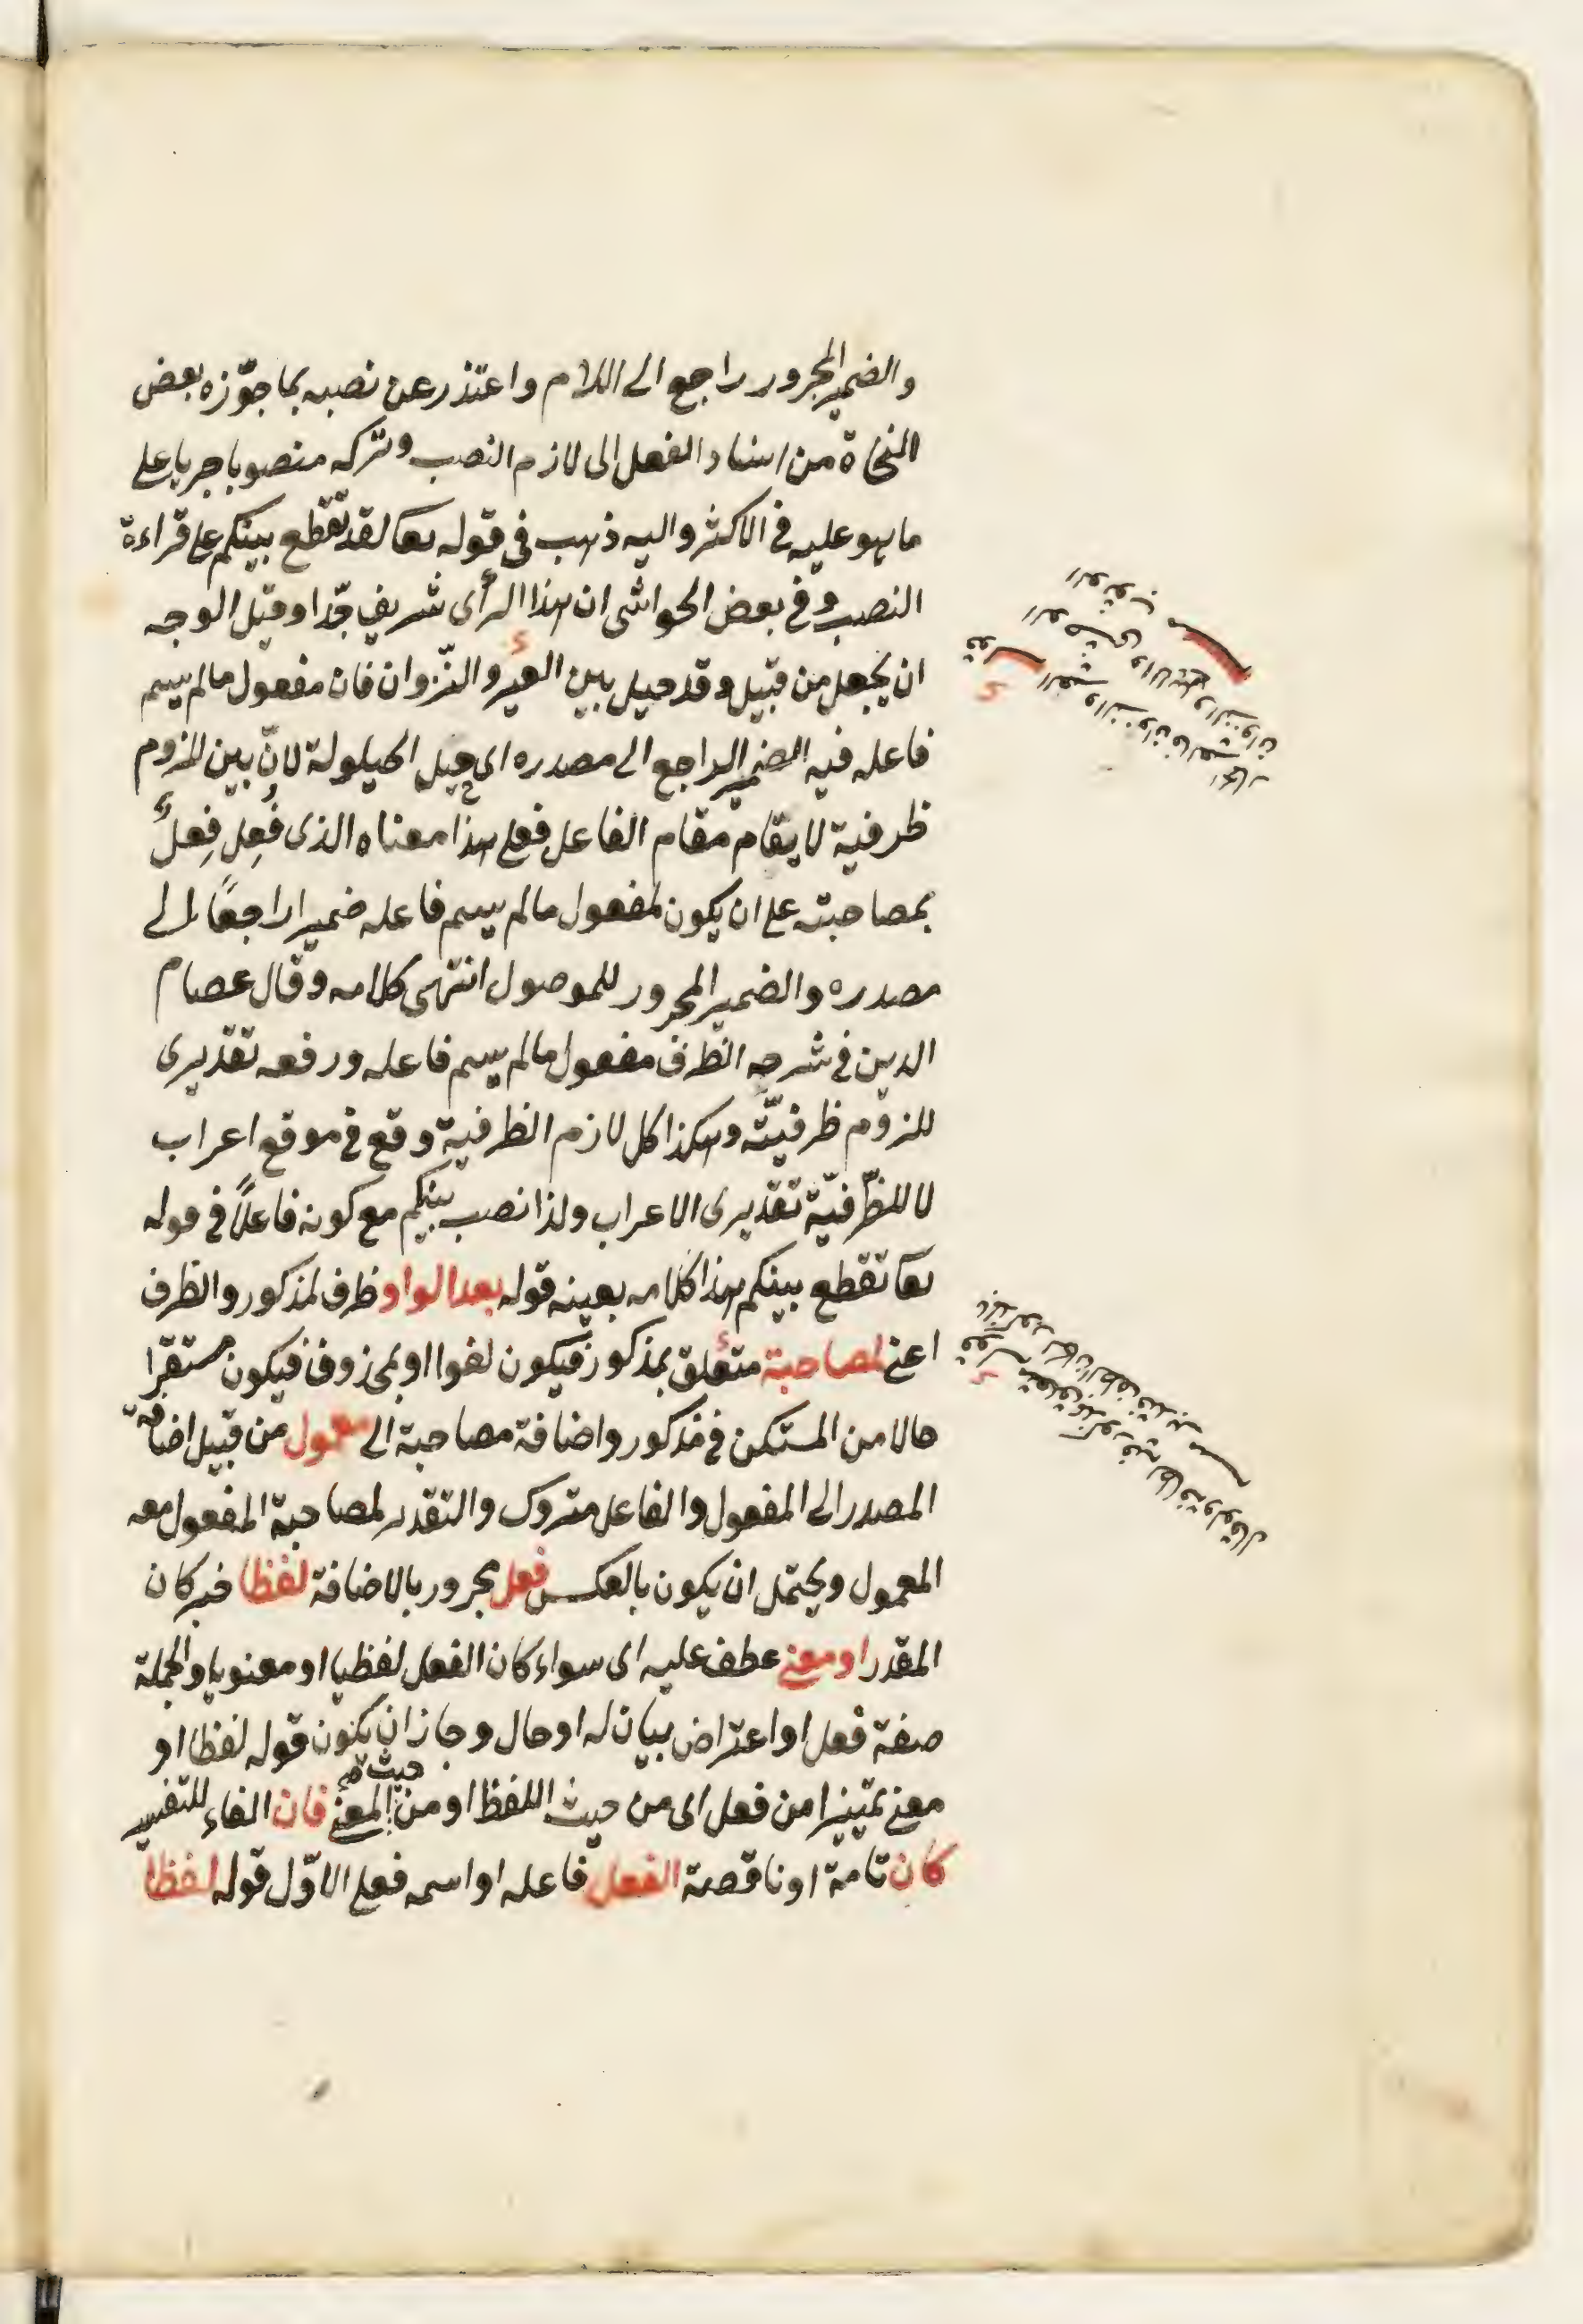 والضمير المجرور راجع الى اللام واعتذر عن نصبه بما جوّزه بعض
النحاة من اسناد الفعل الى لازم النصب وتركه منصوبا جريا على
ما هو عليه فى الاكثر واليه ذهب فى قوله تعا لقد تقطع بينكم على قراءة
النصب وفى بعض الحواشى ان هذا الرأى شريف جدّا وقيل الوجه
ان يجعل من قبيل وقد حيل بين العير والنّزوان فان مفعول مالم يسم
فاعله فيه الضمير الراجع الى مصدره اى حيل الحيلولة لانّ بين للزوم
ظرفية لا يقام مقام الفاعل فعلى هذا معناه الذى فُعِل فِعلٌ
بمصاحبته على ان يكون لمفعول مالم يسم فاعله ضميرا راجعًا الى
مصدره والضمير المجرور للموصول انتهى كلامه وقال عصام
الدين فى شرحه الظرف مفعول مالم يسم فاعله ورفعه تقديرى
للزوم ظرفيّته وهكذا كل لازم الظرفية وقع فى موقع اعراب
لا للظّرفيّة تقديرى الاعراب ولذا نصب بينكم مع كونه فاعلًا فى قوله
تعا تقطع بينكم هذا كلامه بعينه قوله بعد الواو ظرف لمذكور والظرف
اعنى لمصاحبة متعلق بمذكور فيكون لغوا او بمحذوف فيكون مستقرّا
حالا من المستكن فى مذكور واضافة مصاحبة الى معمول من قبيل اضافة
المصدر الى المفعول والفاعل متروك والتقدير لمصاحبة المفعول معه
المعمول ويحتمل ان يكون بالعكس فعل مجرور بالاضافة لفظا خبر كان
المقدر او معنى عطف عليه اى سواء كان الفعل لفظيا او معنويا والجملة
صفة فعل او اعتراض بيان له او حال وجاز ان يكون قوله لفظا او
معنى تمييزا من فعل اى من حيث اللفظ او من حيث المعنى فان الفاء للتفسير
كان تامة او ناقصة الفعل فاعله او اسمه فعلى الاوّل قوله لفظا